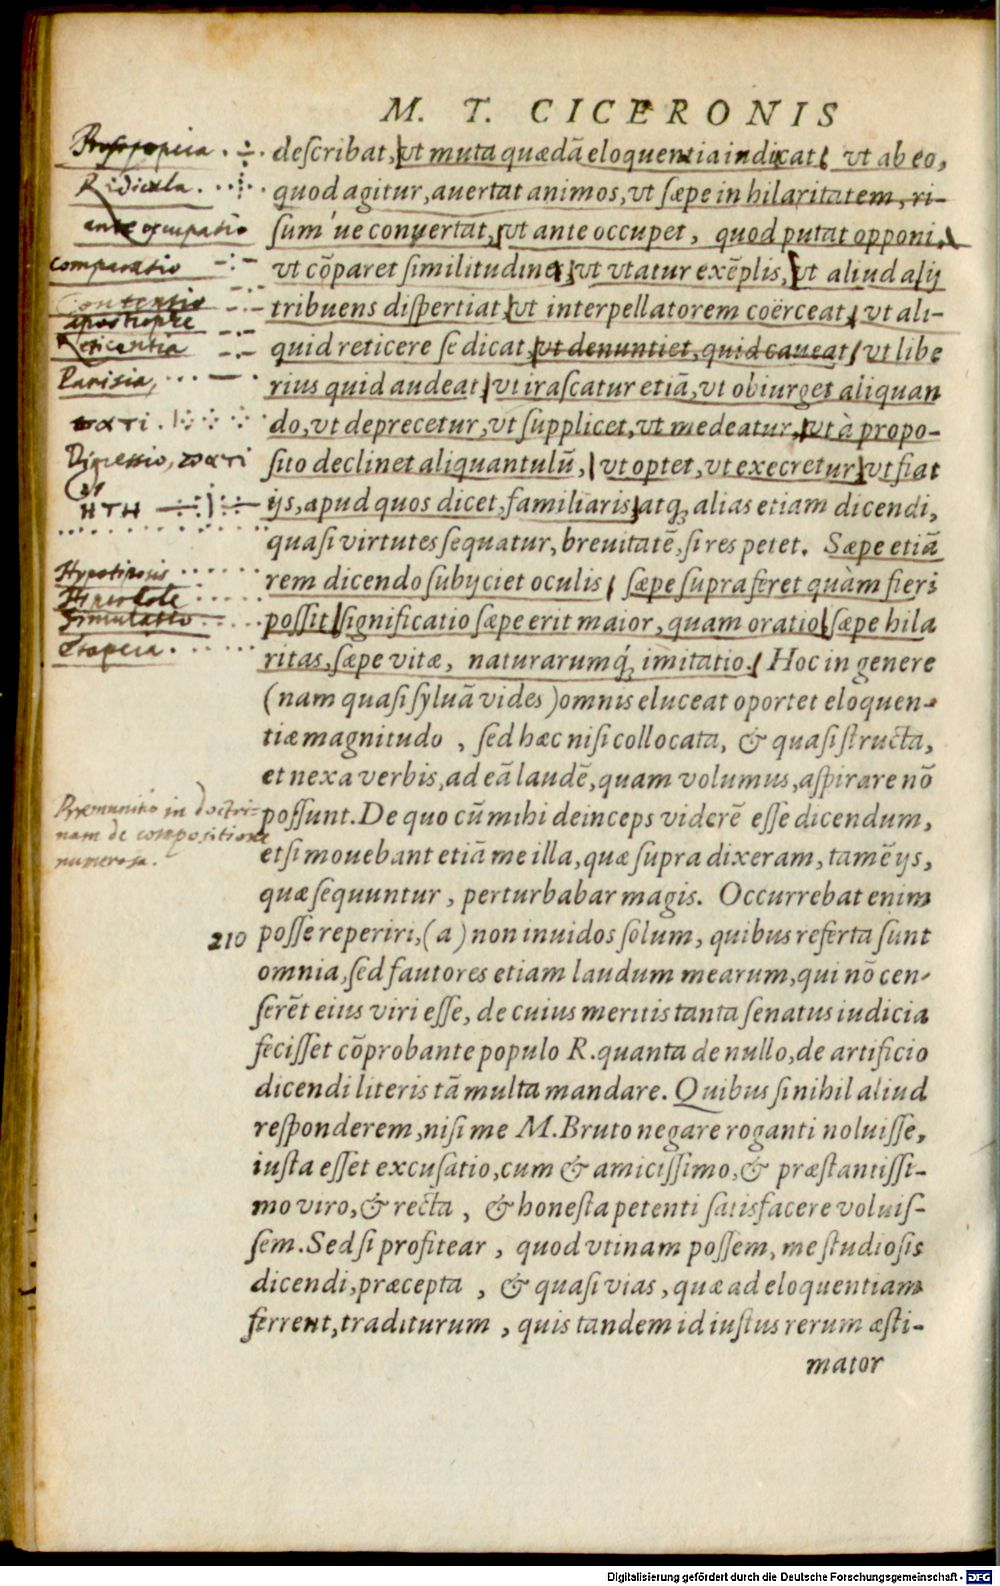 M. T. CICERONIS
Prosopopeia
deſcribat, vt muta quædã eloquentia indicat, vt ab eo,
Ridicula
quod agitur, auertat animos, vt ſæpe in hilaritatem, ri-
ante occupatio
ſum úe conuertat, vt ante occupet, quod putat opponi,
comparatio
vt cõparet ſimilitudine, vt vtatur exẽplis, vt aliud alij
Contentio
tribuens diſpertiat, vt interpellatorem coërceat, vt ali-
apostrophe
Reticentia
quid reticere ſe dicat, vt denuntiet, quid caueat, vt libe
Parisia,
rius quid audeat, vt iraſcatur etiã, vt obiurget aliquan
do, vt deprecetur, vt ſupplicet, vt medeatur, vt à propo-
Digressio,
ſito declinet aliquantulũ, vt optet, vt execretur, vt fiat
ijs, apud quos dicet, familiaris, atq; alias etiam dicendi,
quaſi virtutes ſequatur, breuitatẽ, ſi res petet. Sæpe etiã
Hypotiposis
rem dicendo ſubijciet oculis, ſæpe ſupra feret quàm fieri
Hiperbole
Simulatio
poſſit, ſignificatio ſæpe erit maior, quam oratio, ſæpe hila
Etopeia
ritas, ſæpe vitæ, naturarumq́; imitatio. Hoc in genere
(nam quaſi ſyluã vides) omnis eluceat oportet eloquen-
tiæ magnitudo, ſed hæc niſi collocata, & quaſi ſtructa,
et nexa verbis, ad eã laudẽ, quam volumus, aſpirare nõ
Præmunitio in doctri-
poſſunt. De quo cũ mihi deinceps viderẽ eſſe dicendum,
nam de compositione
numerosa.
etſi mouebant etiã me illa, quæ ſupra dixeram, tamẽ ijs,
quæ ſequuntur, perturbabar magis. Occurrebat enim
210 poſſe reperiri, (a) non inuidos ſolum, quibus referta ſunt
omnia, ſed fautores etiam laudum mearum, qui nõ cen-
ſerẽt eius viri eſſe, de cuius meritis tanta ſenatus iudicia
feciſſet cõprobante populo R. quanta de nullo, de artificio
dicendi literis tã multa mandare. Quibus ſi nihil aliud
reſponderem, niſi me M. Bruto negare roganti noluiſſe,
iuſta eſſet excuſatio, cum & amiciſſimo, & præſtantiſſi-
mo viro, & recta, & honeſta petenti ſatisfacere voluiſ-
ſem. Sed ſi profitear, quod vtinam poſſem, me ſtudioſis
dicendi, præcepta, & quaſi vias, quæ ad eloquentiam
ferrent, traditurum, quis tandem id iuſtus rerum æſti-
mator
Digitalisierung gefördert durch die Deutsche Forschungsgemeinschaft - DFG